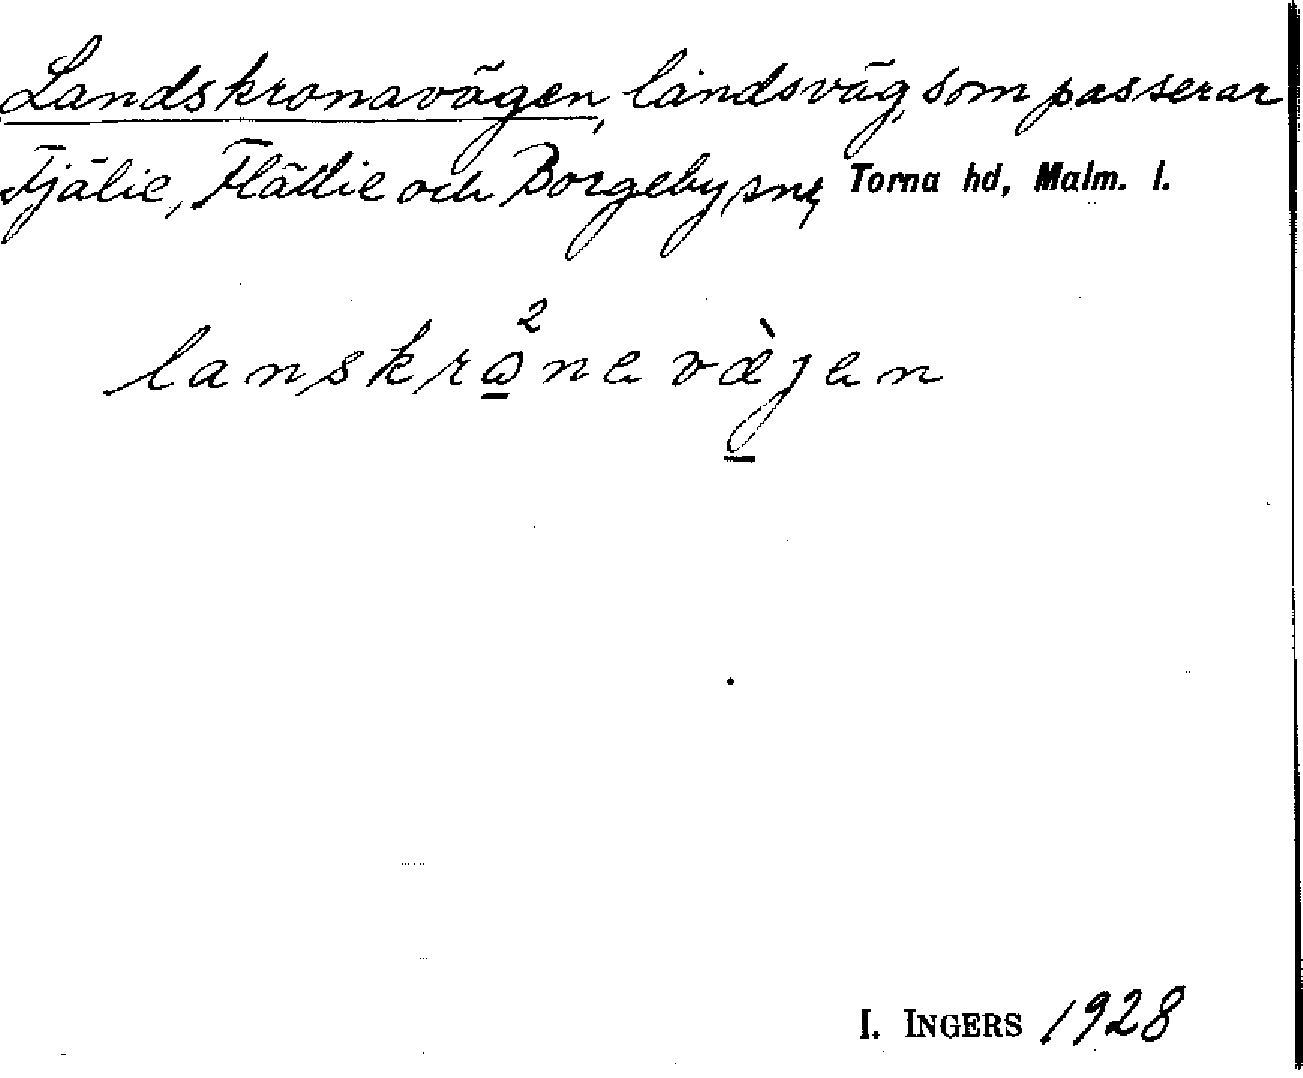 Landskronavägen, landsväg, som passerar
Fjälie, Flädie och Borgeby snr, Torna hd, Malm. l.
I. INGERS 1928